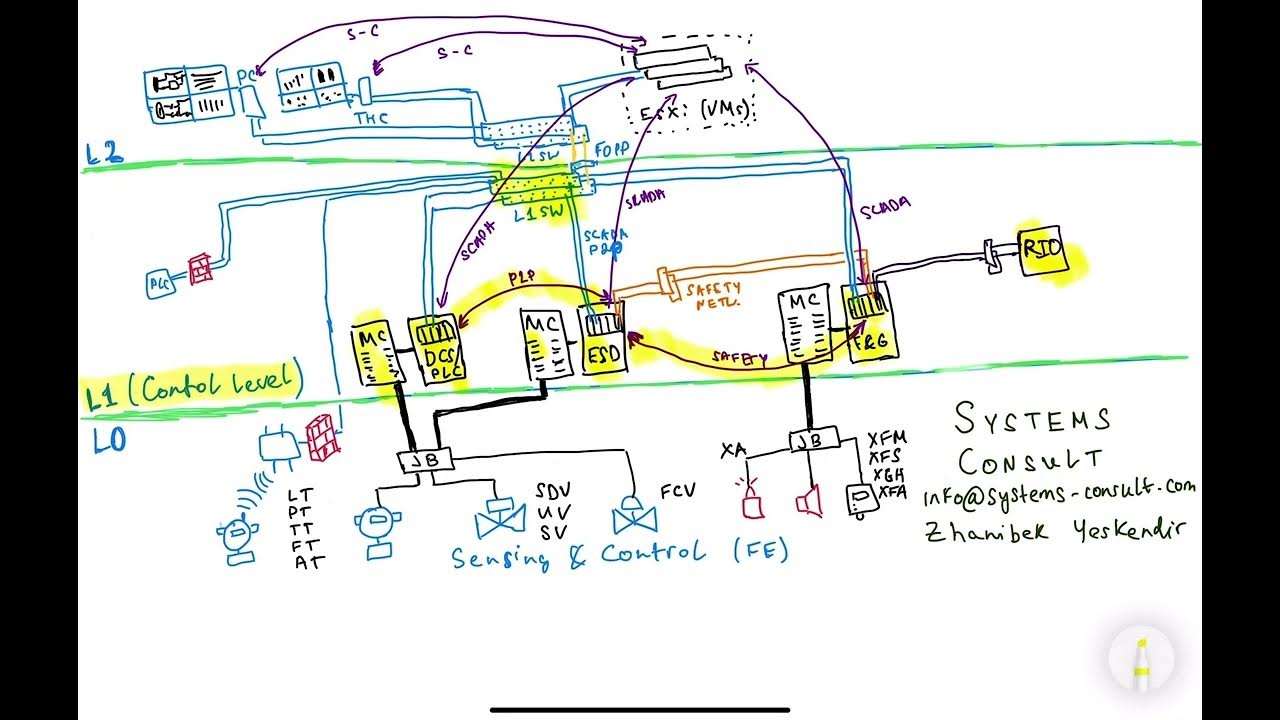 S-C
S-C
PC
THC
ESXi (VMs)
L2
L1SW
FOPP
L1SW
SCADA
SCADA
SCADA
SCADA
P2P
PLC
P2P
SAFETY
NETW.
RIO
MC
DCS/
PLC
MC
ESD
MC
F&G
SAFETY
L1 (Control level)
L0
JB
JB
XA
XFM
XFS
XGH
XFA
LT
PT
TT
FT
AT
SDV
UV
SV
FCV
Sensing & Control (FE)
SYSTEMS
CONSULT
info@systems-consult.com
Zhanibek Yeskendir